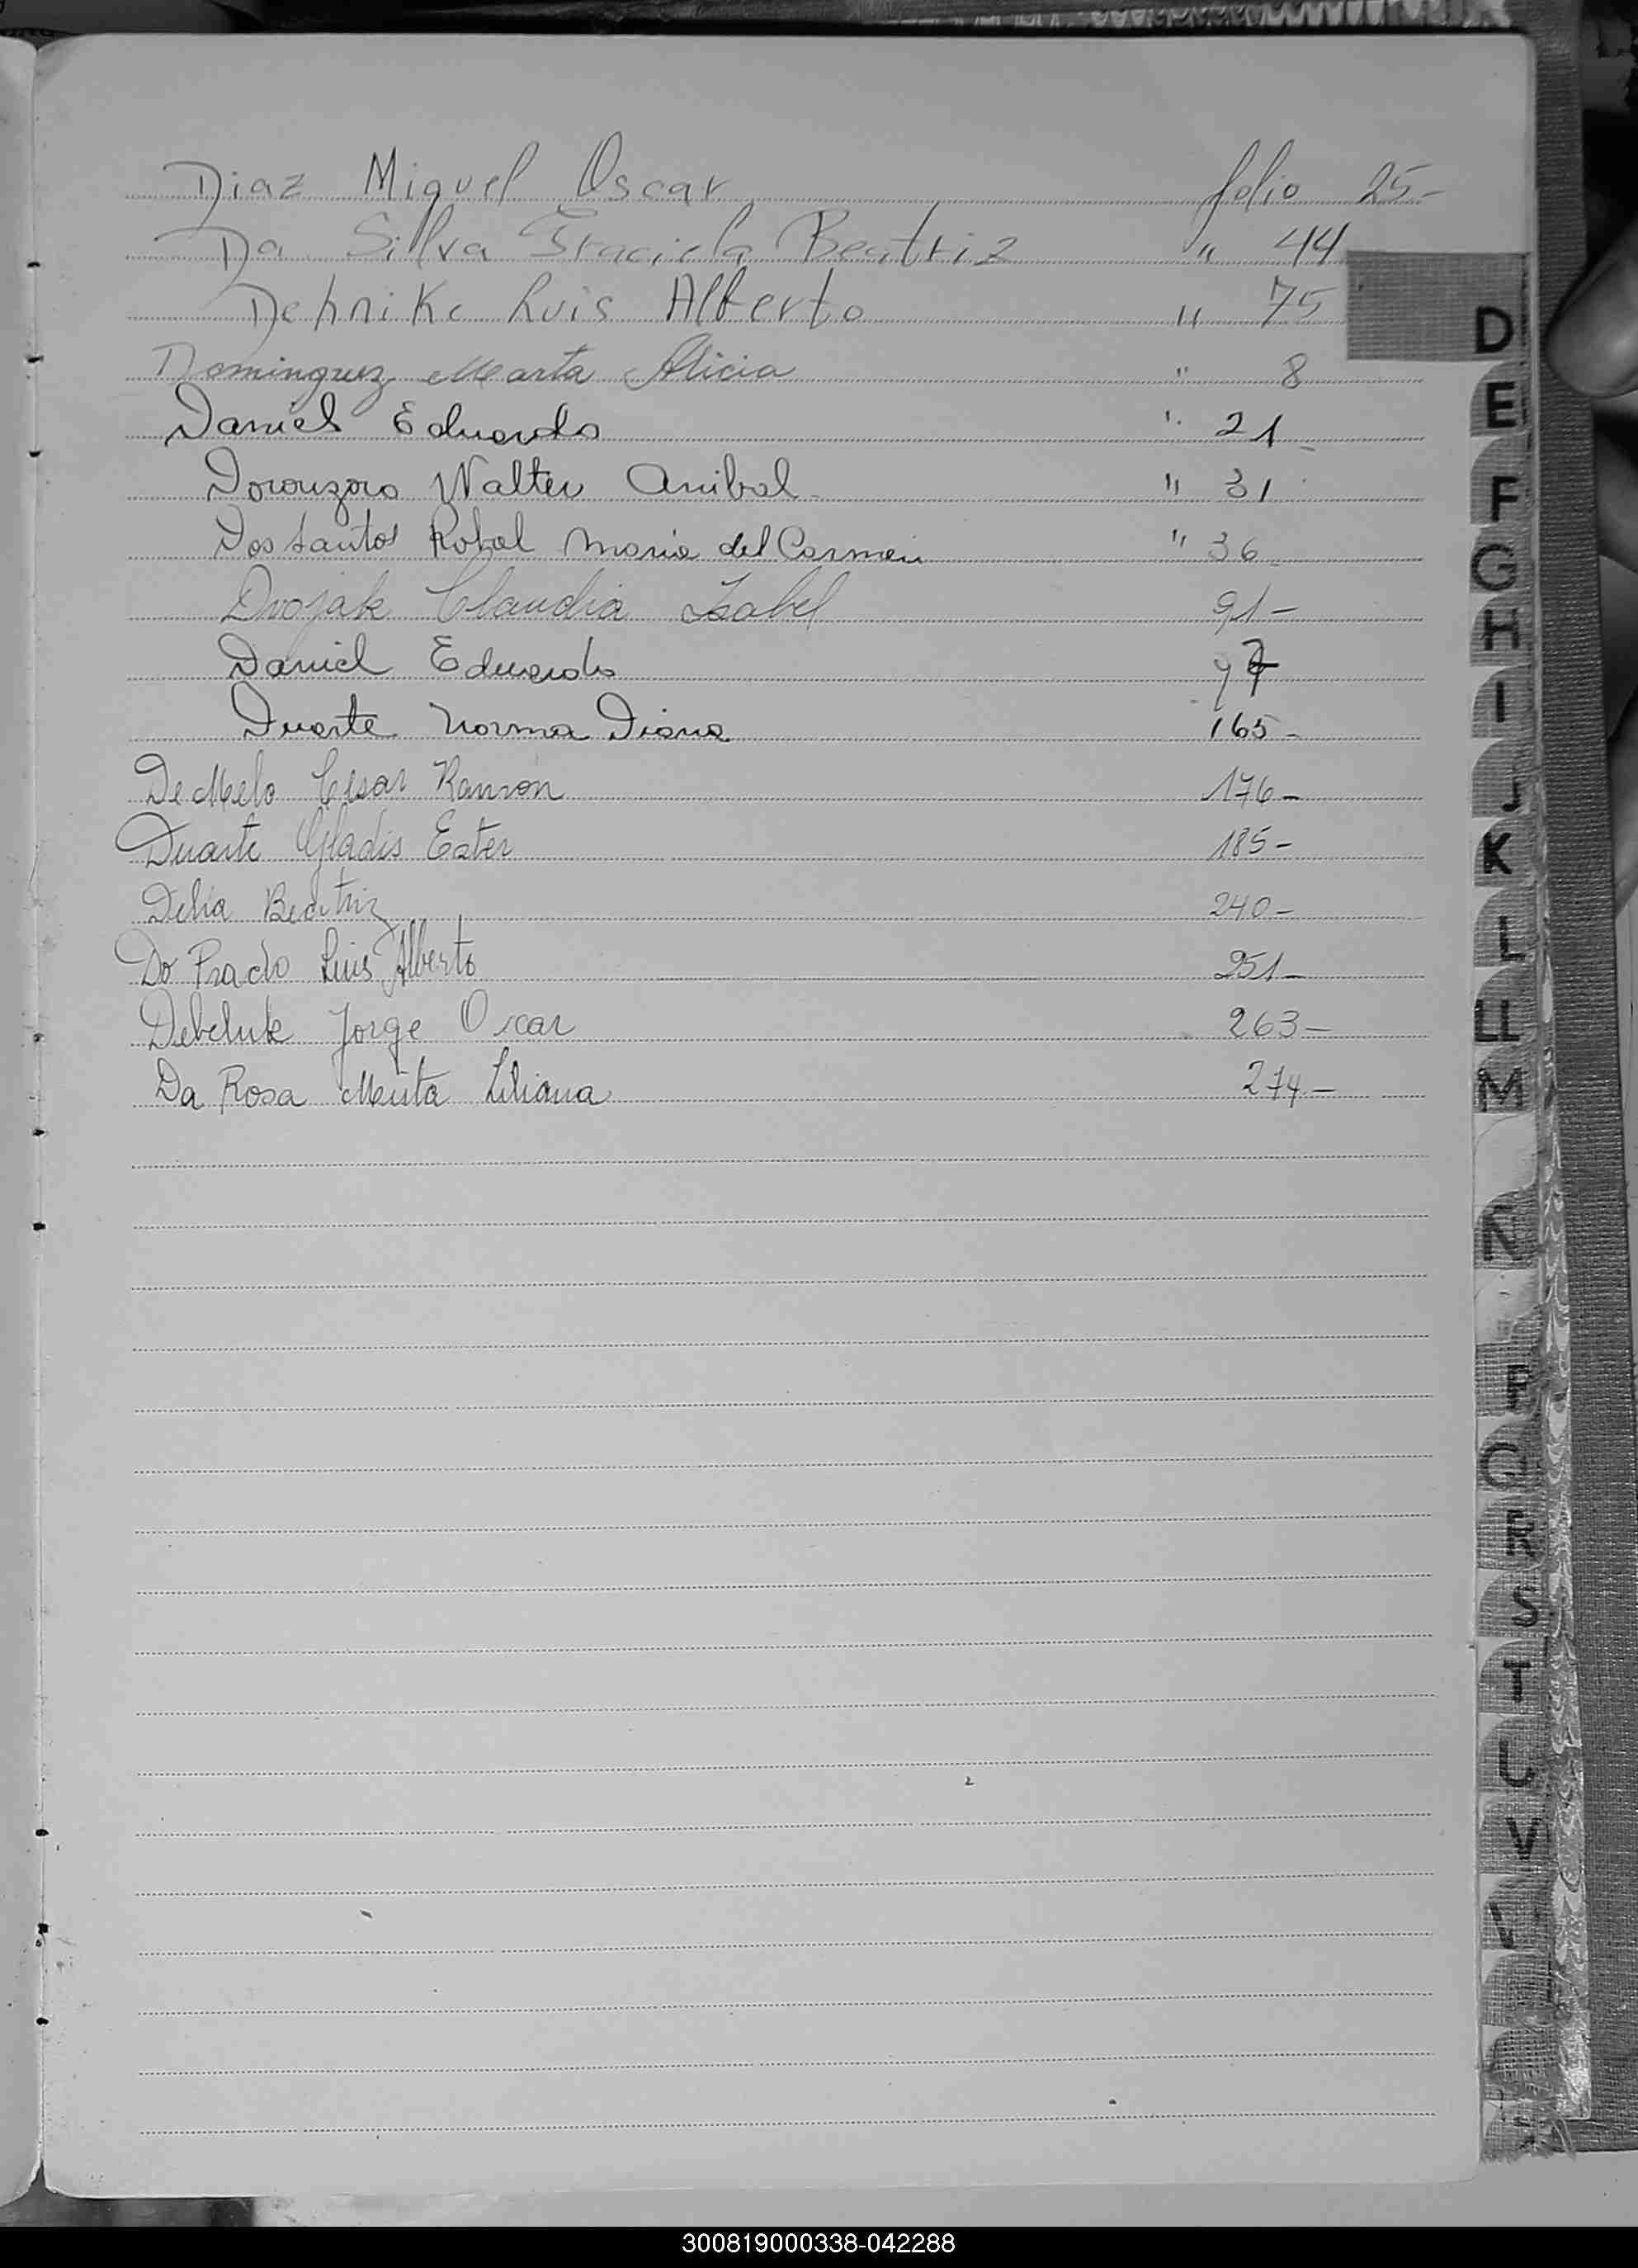 Diaz Miguel Oscar folio 25-
Da Silva Graciela Beatriz " 44
Dehnike Luis Alberto " 75
Dominguez Marta Alicia " 8
Daniel Eduardo " 21
Walter Anibal " 31
Dos Santos Maria del Carmen " 36
Dvojak Claudia Isabel 91-
Daniel Eduardo 97
Duarte Norma Diana 165-
De Melo Cesar Ramon 176-
Duarte Gladis Ester 185-
Delia Beatriz 240-
Do Prado Luis Alberto 251-
Debeluk Jorge Oscar 263-
Da Rosa Mirta Liliana 274.-
D
E
F
G
H
I
J
K
L
LL
M
Ñ
P
Q
R
S
T
U
V
300819000338-042288